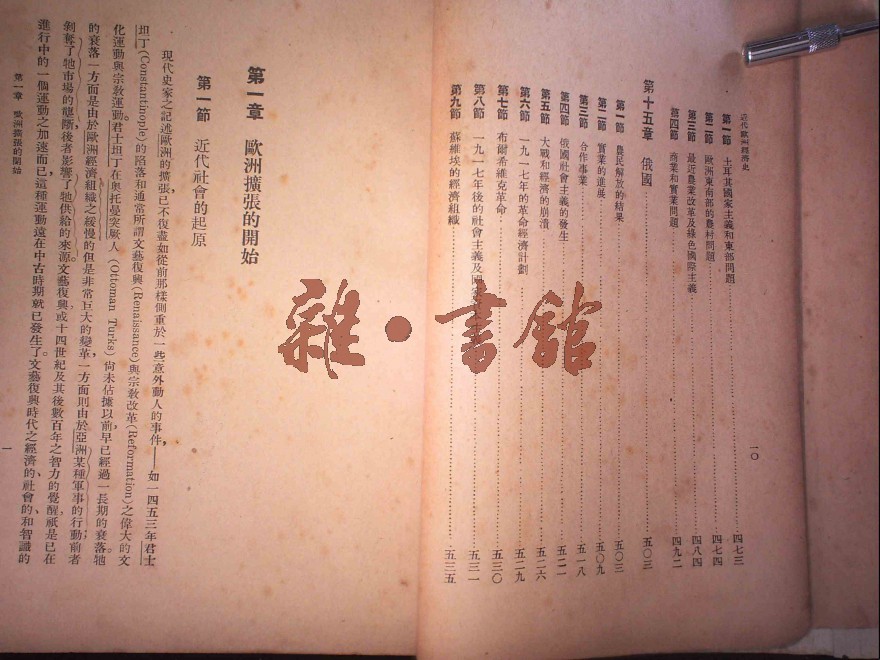 近代歐洲經濟史
第一節 土耳其國家主義和東部問題 四七三
第二節 歐洲東南部的農村問題 四七四
第三節 最近農業改革及綠色國際主義 四八四
第四節 商業和實業問題 四九二
第十五章 俄國 五〇三
第一節 農民解放的結果 五〇三
第二節 實業的進展 五〇九
第三節 合作事業 五一八
第四節 俄國社會主義的發生 五二一
第五節 大戰和經濟的崩潰 五二六
第六節 一九一七年的革命經濟計劃 五二九
第七節 布爾希維克革命 五三〇
第八節 一九一七年後的社會主義及國 五三一
第九節 蘇維埃的經濟組織 五三五
一〇
第一章 歐洲擴張的開始
第一節 近代社會的起原
現代史家之記述歐洲的擴張,已不復盡如從前那樣側重於一些意外動人的事件,——如一四五三年君士
坦丁(Constantinople)的陷落和通常所謂文藝復興(Renaissance)與宗教改革(Reformation)之偉大的文
化運動與宗教運動。君士坦丁在奧托曼突厥人(Ottoman Turks)尙未佔據以前,早已經過一長期的衰落。牠
的衰落一方面是由於歐洲經濟組織之緩慢的但是非常巨大的變革,一方面則由於亞洲某種軍事的行動;前者
剝奪了牠市場的壟斷,後者影響了牠供給的來源。文藝復興,或十四世紀及其後數百年之智力的覺醒,祇是已在
進行中的一個運動之加速而已,這種運動遠在中古時期就已發生了。文藝復興時代之經濟的、社會的、和智識的
第一章 歐洲擴張的開始
一
雜·書館